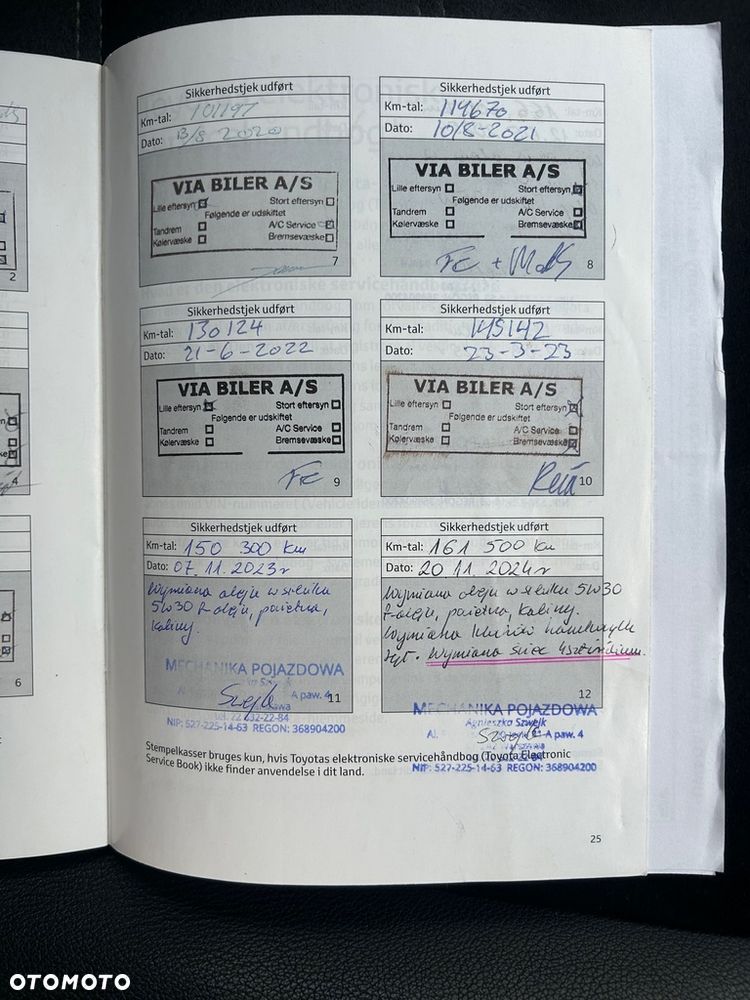 Sikkerhedstjek udført
Km-tal: 101197
Dato: 13/8 2020
VIA BILER A/S
Lille eftersyn
Stort eftersyn
Følgende er udskiftet
Tandrem
A/C Service
Kølervæske
Bremsevæske
7
Sikkerhedstjek udført
Km-tal: 119670
Dato: 10/8-2021
VIA BILER A/S
Lille eftersyn
Stort eftersyn
Følgende er udskiftet
Tandrem
A/C Service
Kølervæske
Bremsevæske
8
Sikkerhedstjek udført
Km-tal: 130124
Dato: 21-6-2022
VIA BILER A/S
Lille eftersyn
Stort eftersyn
Følgende er udskiftet
Tandrem
A/C Service
Kølervæske
Bremsevæske
9
Sikkerhedstjek udført
Km-tal: 145142
Dato: 23-3-23
VIA BILER A/S
Lille eftersyn
Stort eftersyn
Følgende er udskiftet
Tandrem
A/C Service
Kølervæske
Bremsevæske
10
Sikkerhedstjek udført
Km-tal: 150 300 km
Dato: 07.11.2023r
Wymiana oleju w silniku
5W30 f-oleju, powietrza,
kabiny.
MECHANIKA POJAZDOWA
paw. 4
tel. 22 632-22-84
NIP: 527-225-14-63 REGON: 368904200
11
Sikkerhedstjek udført
Km-tal: 161 500 km
Dato: 20.11.2024r
Wymiana oleju w silniku 5W30
f-oleju, powietrza, kabiny.
Wymiana klocków hamulcowych
tył. Wymiana świec
12
MECHANIKA POJAZDOWA
Agnieszka Szwejk
Al. paw. 4
NIP: 527-225-14-63 REGON: 368904200
Stempelkasser bruges kun, hvis Toyotas elektroniske servicehåndbog (Toyota Electronic
Service Book) ikke finder anvendelse i dit land.
25
2
4
6
OTOMOTO